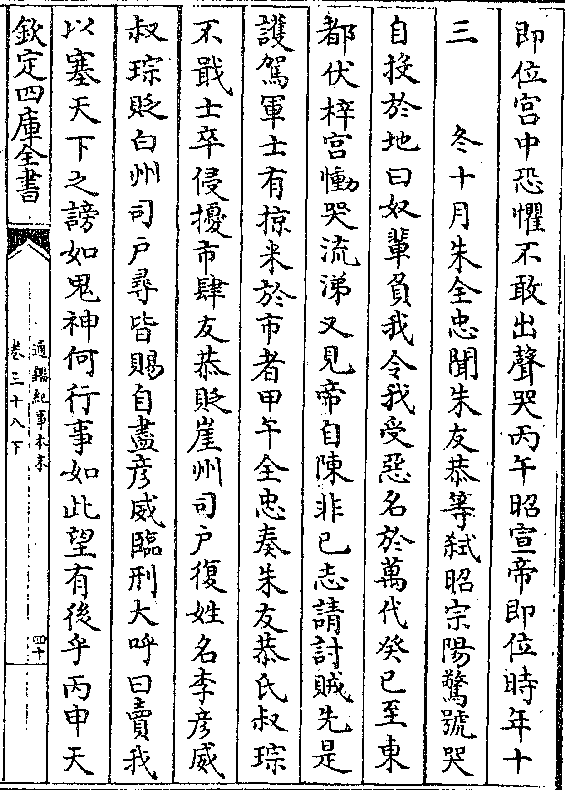 即位宫中恐懼不敢出聲哭丙午昭宣帝即位時年十
三　　冬十月朱全忠聞朱友恭等弑昭宗陽驚號哭
自投於地曰奴輩負我令我受惡名於萬代癸巳至東
都伏梓宫慟哭流涕又見帝自陳非已志請討賊先是
護駕軍士有掠米於市者甲午全忠奏朱友恭氏叔琮
不戢士卒侵擾市肆友恭貶崖州司户復姓名李彦威
叔琮貶白州司户尋皆賜自盡彦威臨刑大呼曰賣我
以塞天下之謗如鬼神何行事如此望有後乎丙申天
欽定四庫全書
通鑑紀事本末
卷三十八下
四十